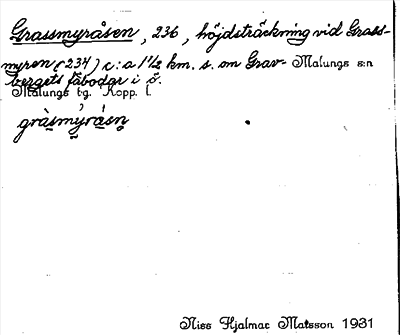 Grassmyråsen, 236, höjdsträckning vid Grass-
myren (234) c:a 1 1/2 km. s. om Grav-
bergets fäbodar i ö.
Malungs s:n
Malungs tg. Kopp. l.
gràsmýrásn̥
Nils Hjalmar Matsson 1931